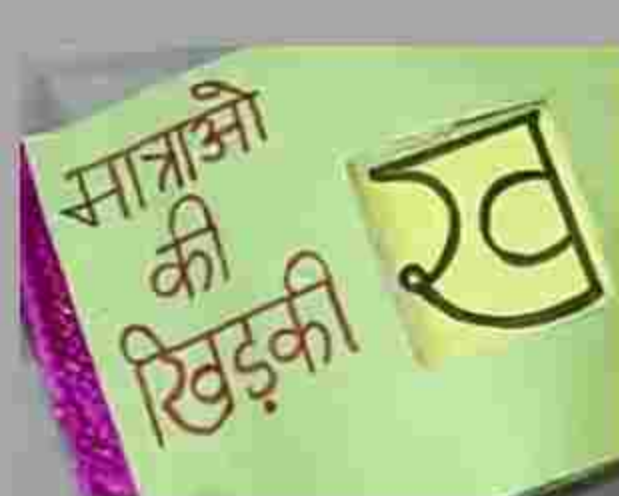 मात्राओ
की
खिड़की
ख